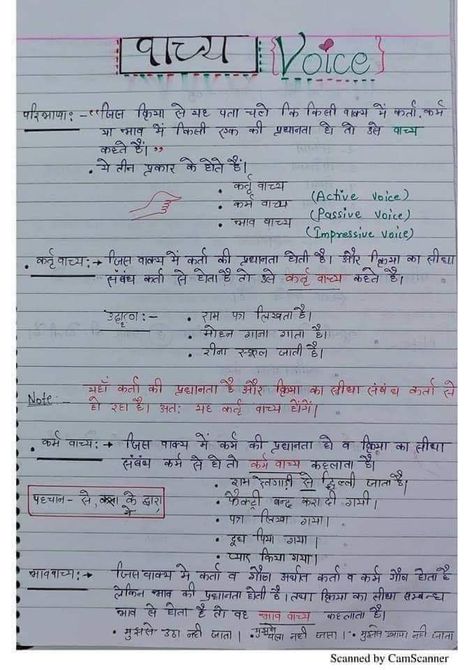 वाच्य {Voice}
परिभाषा:- "जिस क्रिया से यह पता चले कि किसी वाक्य में कर्ता, कर्म
या भाव में किसी एक की प्रधानता हो तो उसे वाच्य
कहते हैं।"
• ये तीन प्रकार के होते हैं।
• कर्तृ वाच्य (Active voice)
• कर्म वाच्य (Passive voice)
• भाव वाच्य (Impressive voice)
• कर्तृवाच्य:→ जिस वाक्य में कर्ता की प्रधानता होती है। और क्रिया का सीधा
संबंध कर्ता से होता है तो उसे कर्तृ वाच्य कहते हैं।
:- • राम पत्र लिखता है।
• मोहन गाना गाता है।
• रीना स्कूल जाती है।
Note:- यहाँ कर्ता की प्रधानता है और क्रिया का सीधा संबंध कर्ता से
हो रहा है। अतः यह कर्तृ वाच्य होंगे।
• कर्म वाच्य:→ जिस वाक्य में कर्म की प्रधानता हो व क्रिया का सीधा
संबंध कर्म से हो तो कर्म वाच्य कहलाता है।
• राम रेलगाड़ी से दिल्ली जाता है।
पहचान- से, के द्वारा
• फैक्ट्री बन्द करा दी गयी।
• पत्र लिखा गया।
• दूध पिया गया।
• प्यार किया गया।
भाववाच्य:→ जिस वाक्य मे कर्ता व गौण अर्थात कर्ता व कर्म गौण होता है
लेकिन भाव की प्रधानता होती है। तथा क्रिया का सीधा सम्बन्ध
भाव से होता है तो वह भाव वाच्य कहलाता है।
• मुझसे उठा नही जाता। • मुझसे चला नही जाता। • मुझसे नही जाता
Scanned by CamScanner